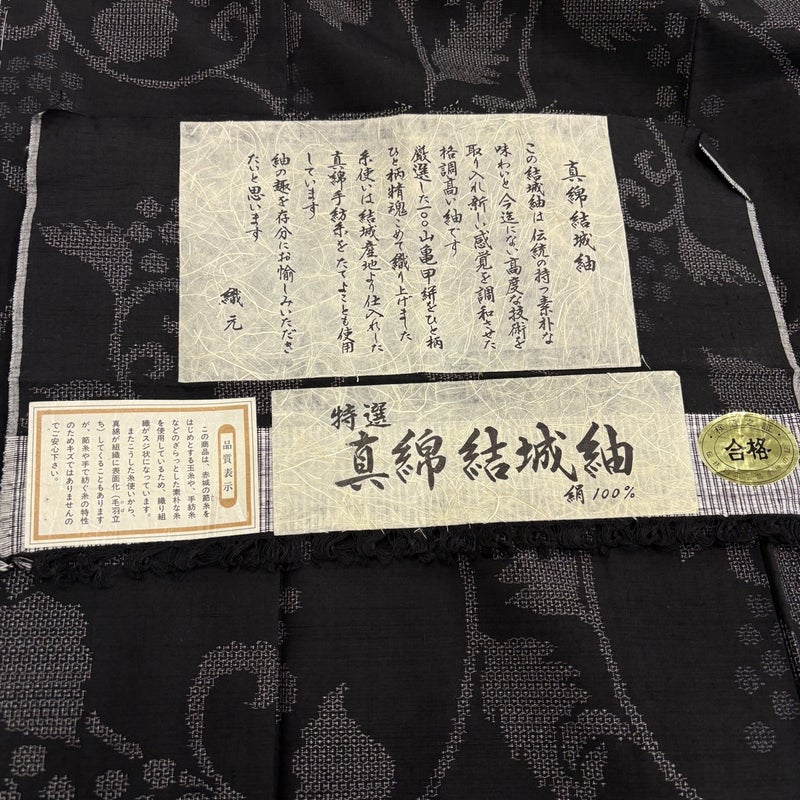 真綿結城紬
この結城紬は伝統の持つ素朴な
味わいと今迄にない高度な技術を
取り入れ新しい感覚を調和させた
格調高い紬です
厳選した一〇〇山亀甲絣をひと柄
ひと柄精魂こめて織り上げました
糸使いは結城産地より仕入れした
真綿手紡糸をたてよことも使用
しています
紬の趣を存分にお愉しみいただき
たいと思います
織元
特選
真綿結城紬
絹100%
品質表示
この商品は、赤城の節糸を
はじめとする玉糸や、手紡糸
などのざらっとした素朴な糸
を使用しているため、織り組
織がスジ状になっています。
またこうした糸使いから、
真綿が組織に表面化（毛羽立
ち）してくることもあります
が、節糸や手で紡ぐ糸の特性
のためキズではありませんの
でご安心下さい。
合格